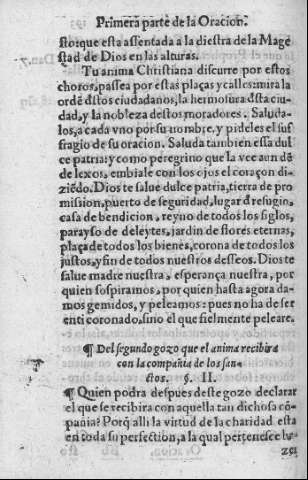 Primera parte de la Oracion.
sto: que esta assentada a la diestra de la Mage
stad de Dios en las alturas.
Tu anima Christiana discurre por estos
choros, passea por estas plaças y calles: mira la
ordẽ dstos ciudadanos, la hermosura dsta ciu-
dad, y la nobleza destos moradores. Saluda-
los, a cada vno por su nombre, y pideles el suf
fragio de su oracion. Saluda tambien essa dul
ce patria: y como peregrino que la vee aun dẽ
de lexos, embiale con los ojos el coraçon di-
ziẽdo. Dios te salue dulce patria, tierra de pro
mission, puerto de seguridad, lugar d refugio,
casa de bendicion, reyno de todos los siglos,
parayso de deleytes, jardin de flores eternas,
plaça de todos los bienes, corona de todos los
justos, y fin de todos nuestros desseos. Dios te
salue madre nuestra, esperança nuestra, por
quien sospiramos, por quien hasta agora da-
mos gemidos, y peleamos: pues no ha de ser
enti coronado, sino el que fielmente peleare.
¶ Del segundo gozo que el anima recibira
con la compañia de los san-
ctos. §. II.
¶ Quien podra despues deste gozo declarar
el que se recibira con aquella tan dichosa cõ-
pañia? Porq̃ alli la virtud de la charidad esta
en toda su perfection, a la qual pertenesce ha
zer